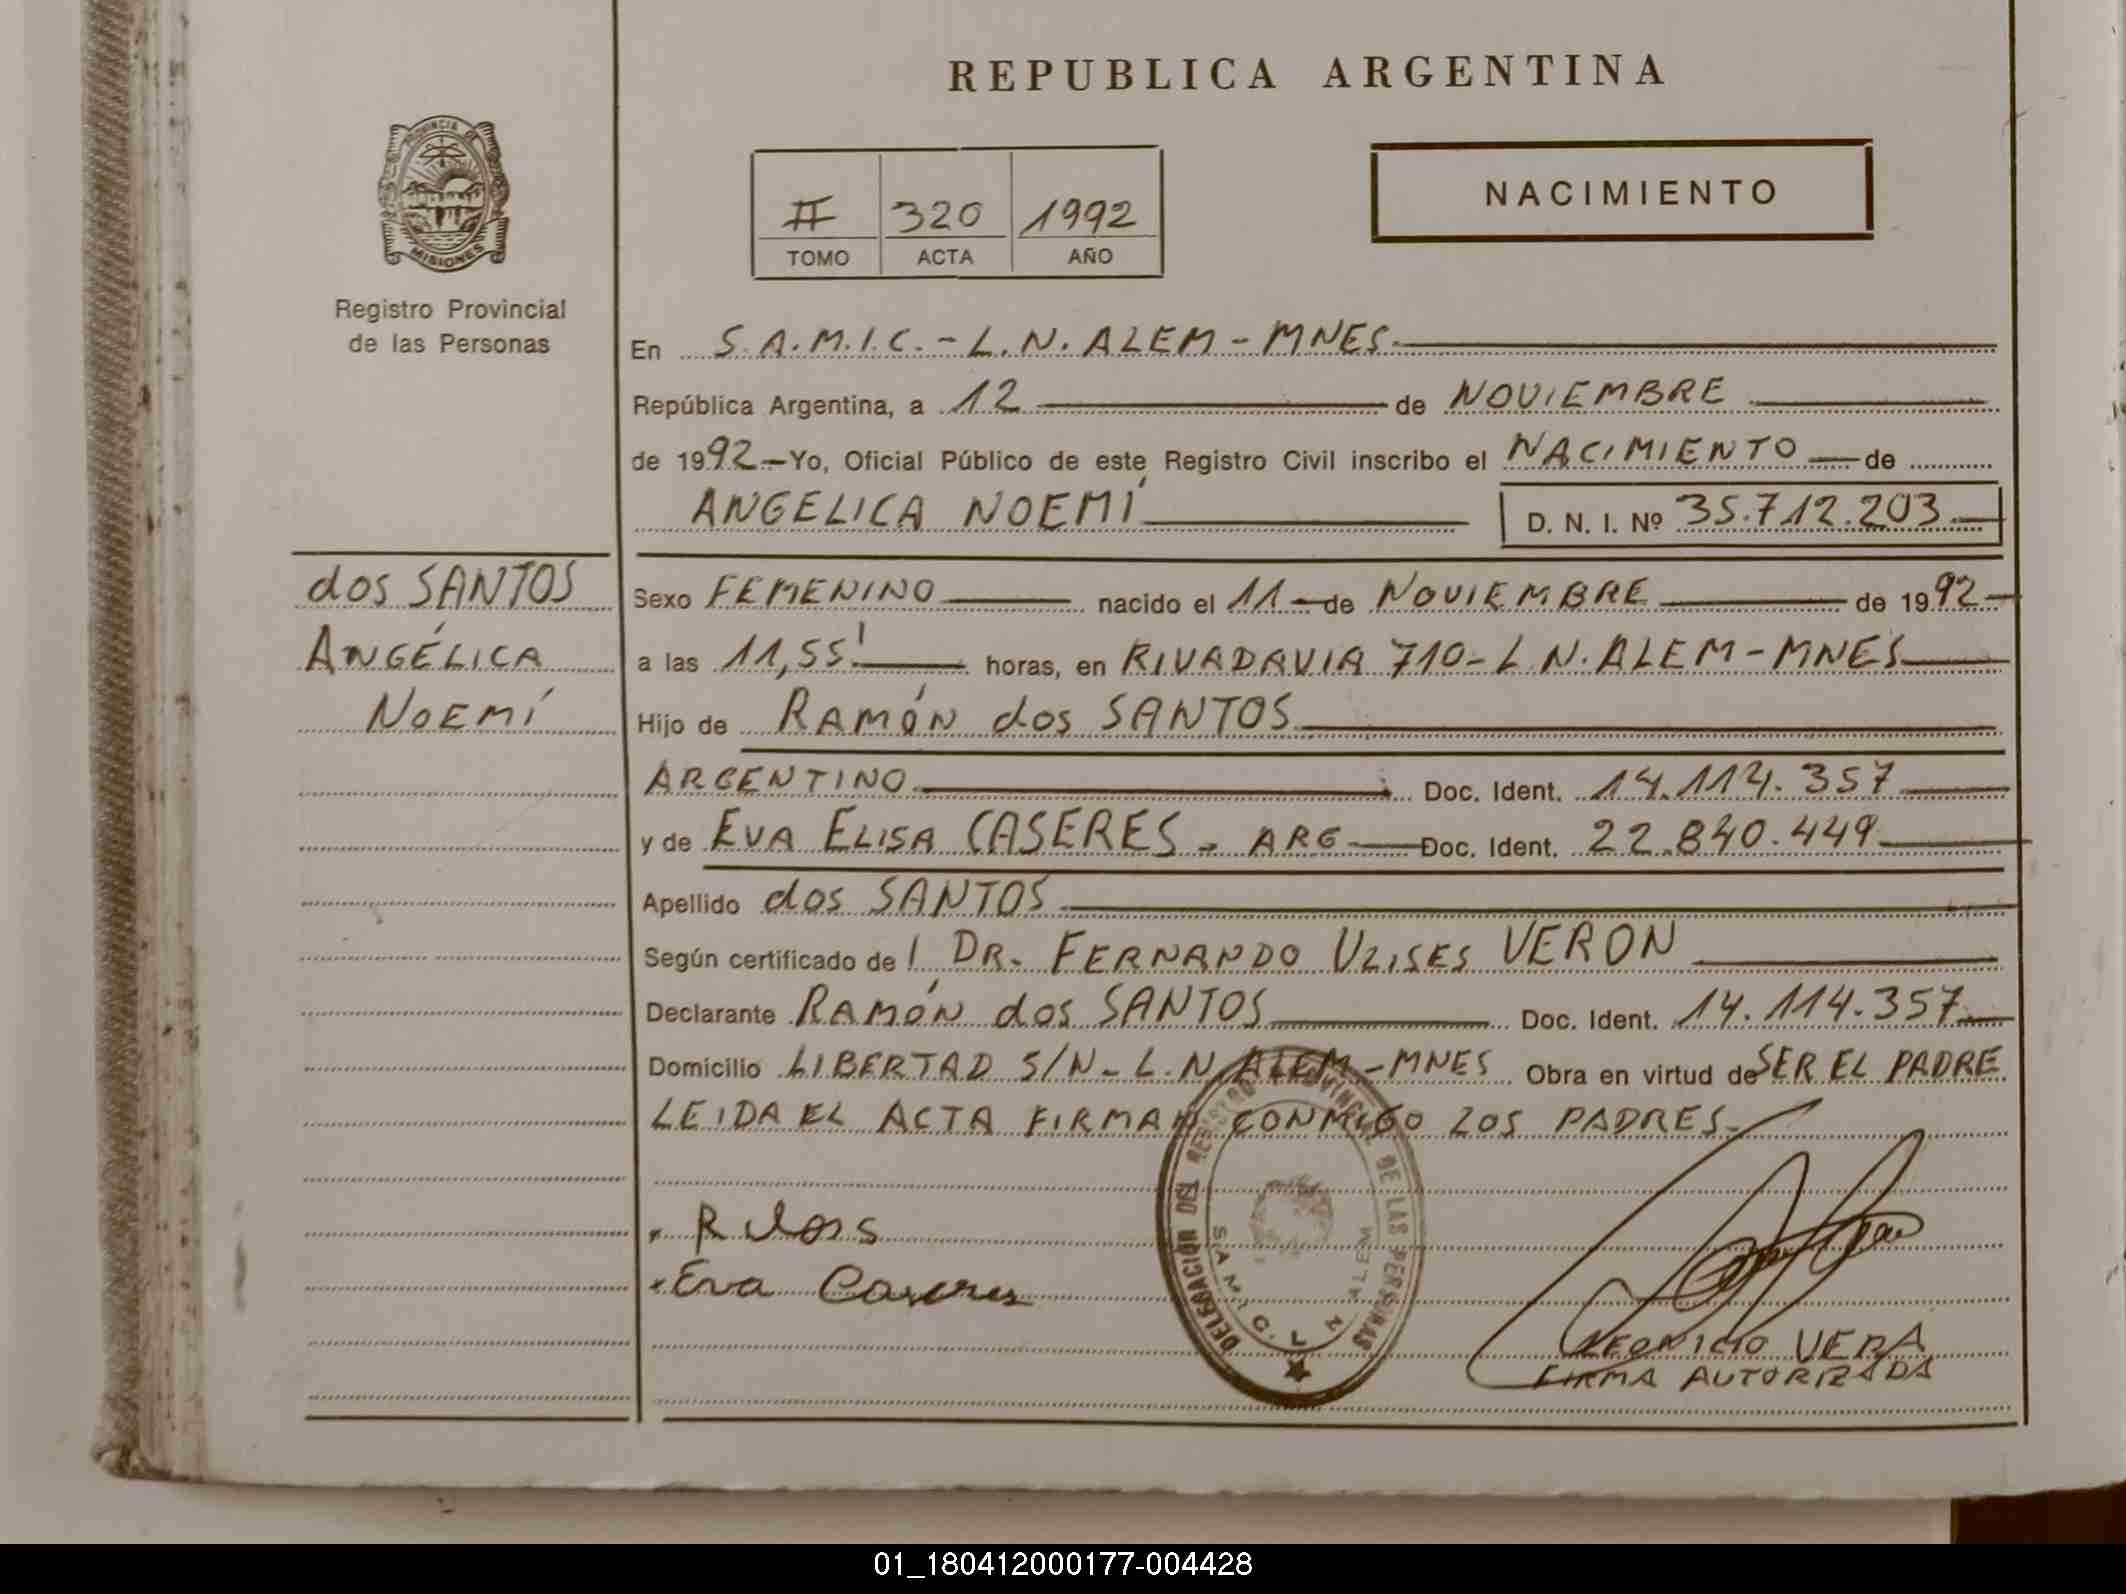 REPUBLICA ARGENTINA
PROVINCIA DE
MISIONES
Registro Provincial
de las Personas
II 320 1992
TOMO ACTA AÑO
NACIMIENTO
En S.A.M.I.C.-L.N.ALEM-MNES.
República Argentina, a 12 de NOVIEMBRE
de 1992.-Yo, Oficial Público de este Registro Civil inscribo el NACIMIENTO de
ANGÉLICA NOEMÍ D. N. I. Nº 35.712.203
dos SANTOS
ANGÉLICA
NOEMÍ
Sexo FEMENINO nacido el 11 de NOVIEMBRE de 1992
a las 11,55' horas, en RIVADAVIA 710-L.N.ALEM-MNES
Hijo de RAMÓN dos SANTOS
ARGENTINO Doc. Ident. 14.114.357
y de EVA ELISA CASERES - ARG Doc. Ident. 22.840.449
Apellido dos SANTOS
Según certificado de l DR. FERNANDO ULISES VERON
Declarante RAMÓN dos SANTOS Doc. Ident. 14.114.357
Domicilio LIBERTAD S/N-L.N.ALEM-MNES Obra en virtud de SER EL PADRE
LEIDA EL ACTA FIRMAN CONMIGO LOS PADRES.-
DELEGACIÓN DEL REGISTRO PROVINCIAL DE LAS PERSONAS
S.A.M.I.C. L. N. ALEM
Eva Caseres
VERA
FIRMA AUTORIZADA
01_180412000177-004428